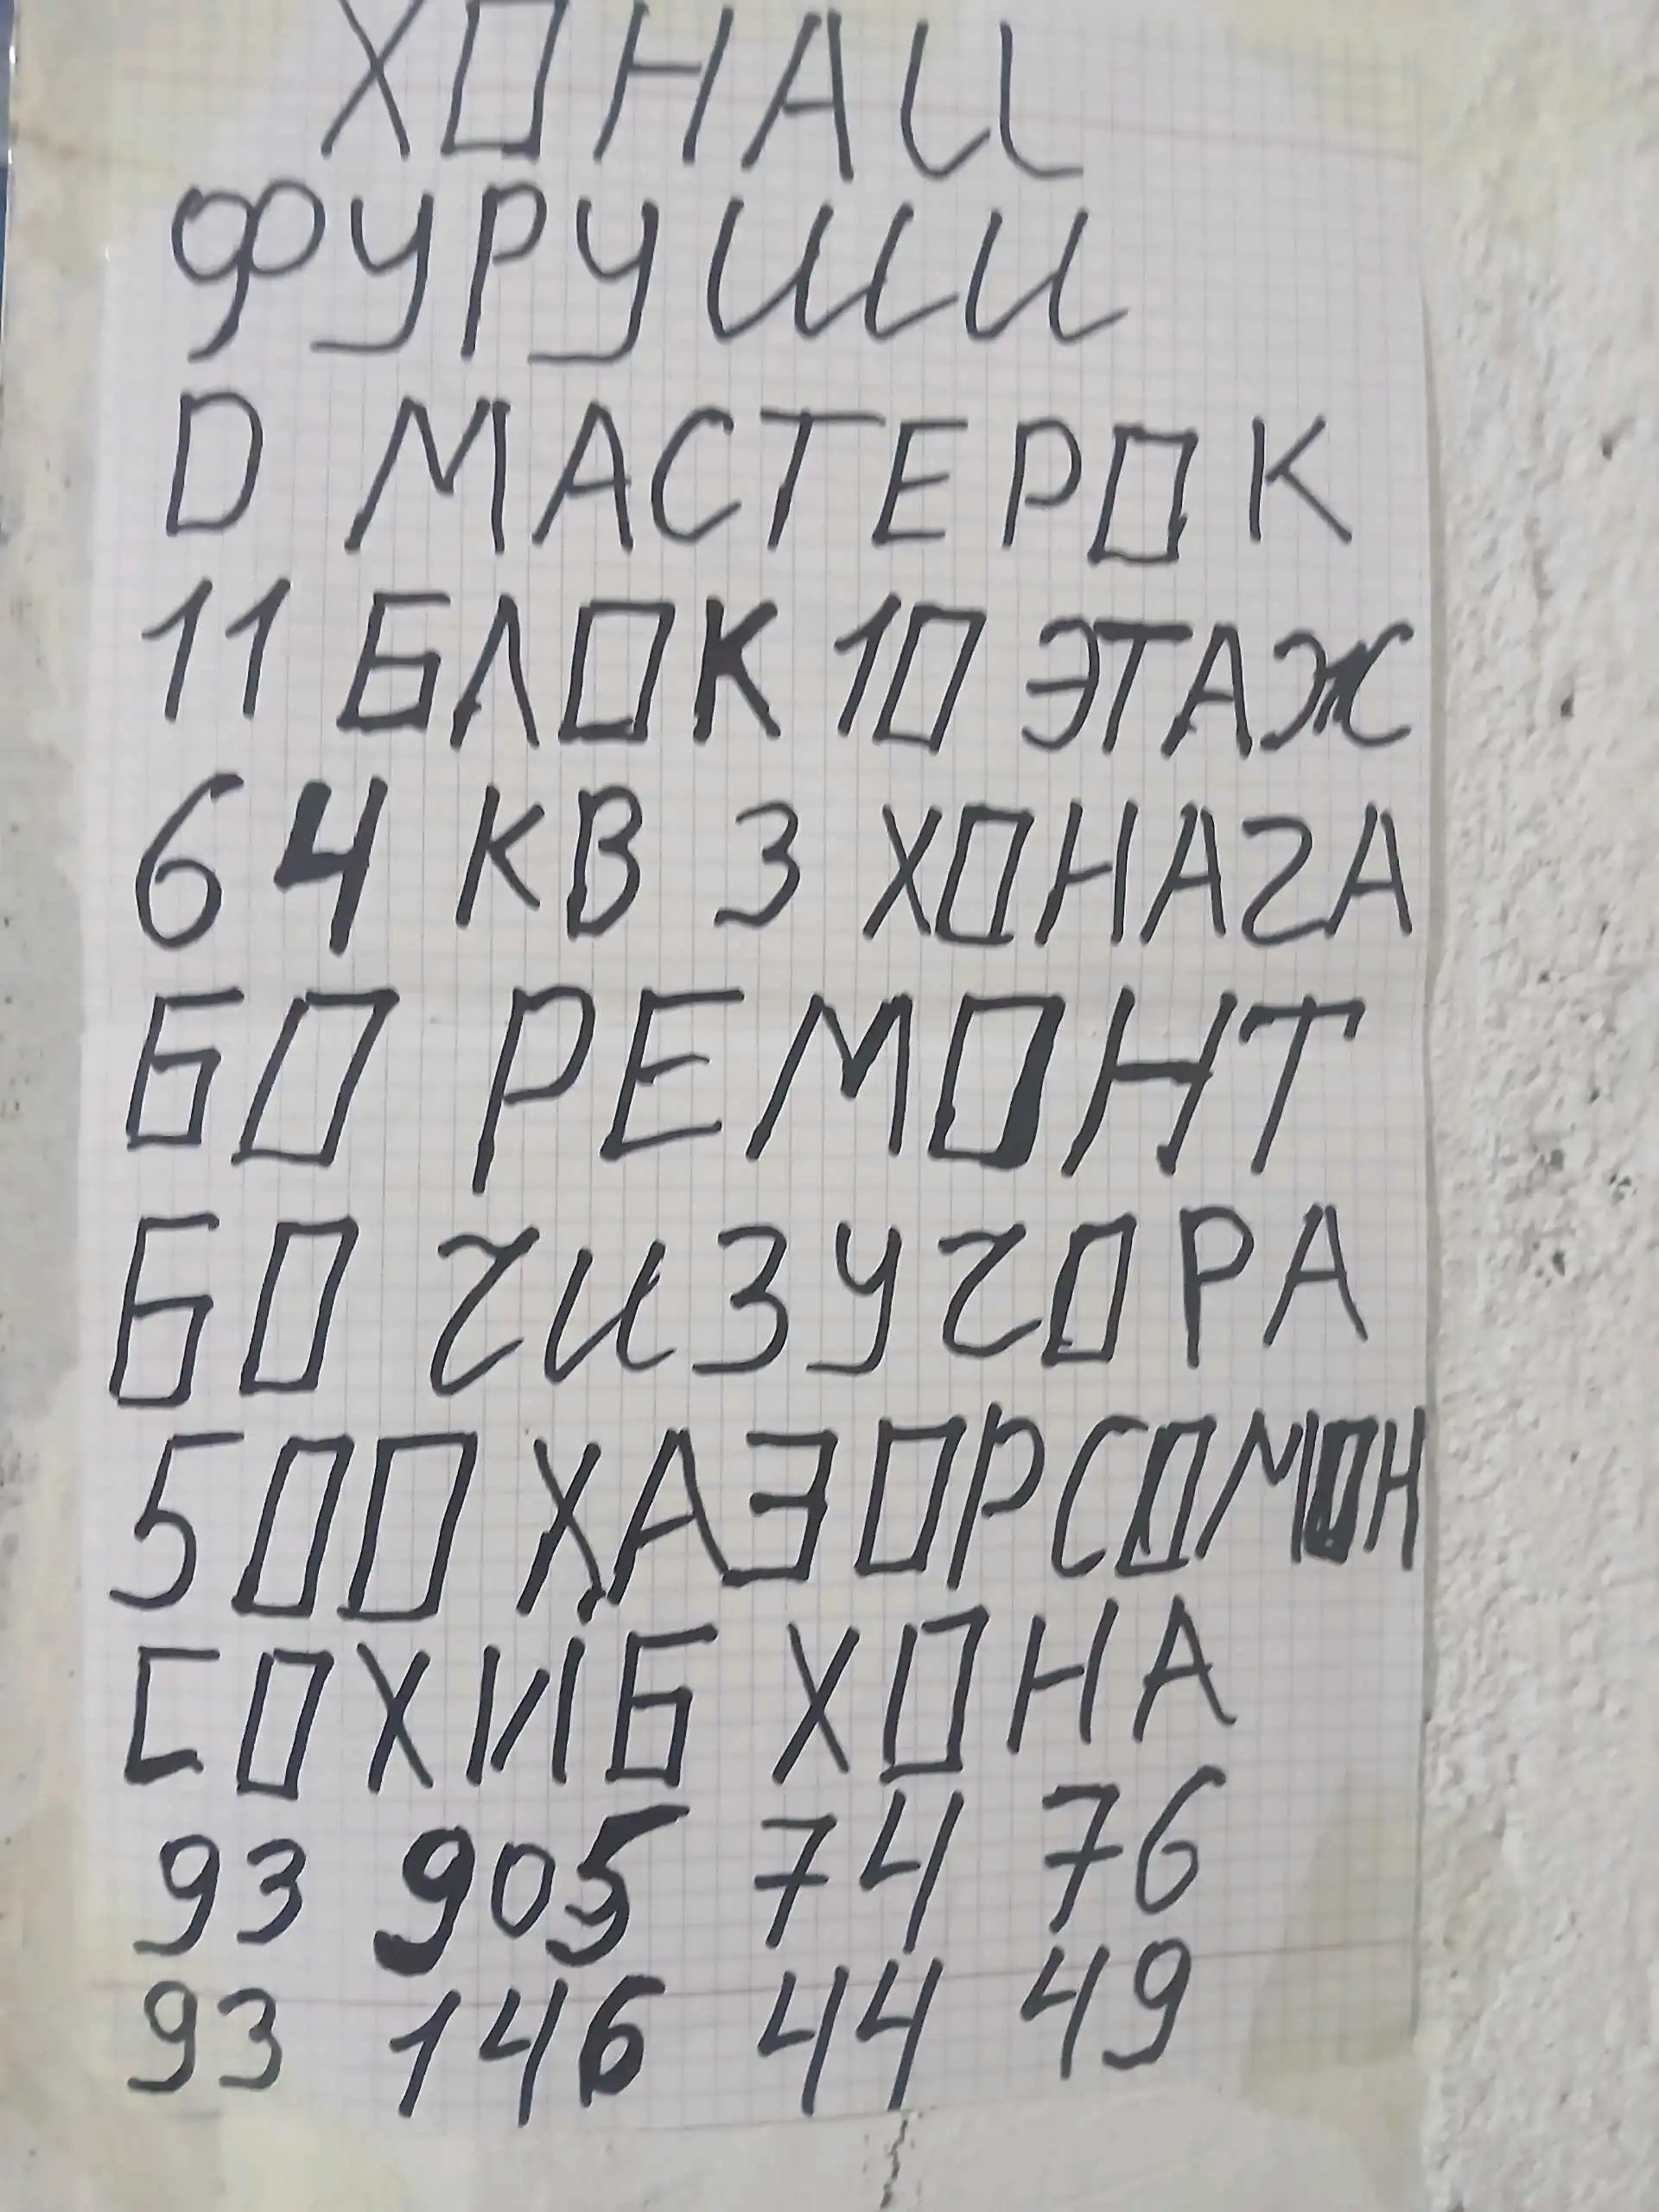 ХОНАИ
ФУРУШИ
D МАСТЕРОК
11 БЛОК 10 ЭТАЖ
64 КВ 3 ХОНАГА
БО РЕМОНТ
БО ГИЗУГОРА
500 ҲАЗОРСОМОН
СОХИБ ХОНА
93 905 74 76
93 146 44 49